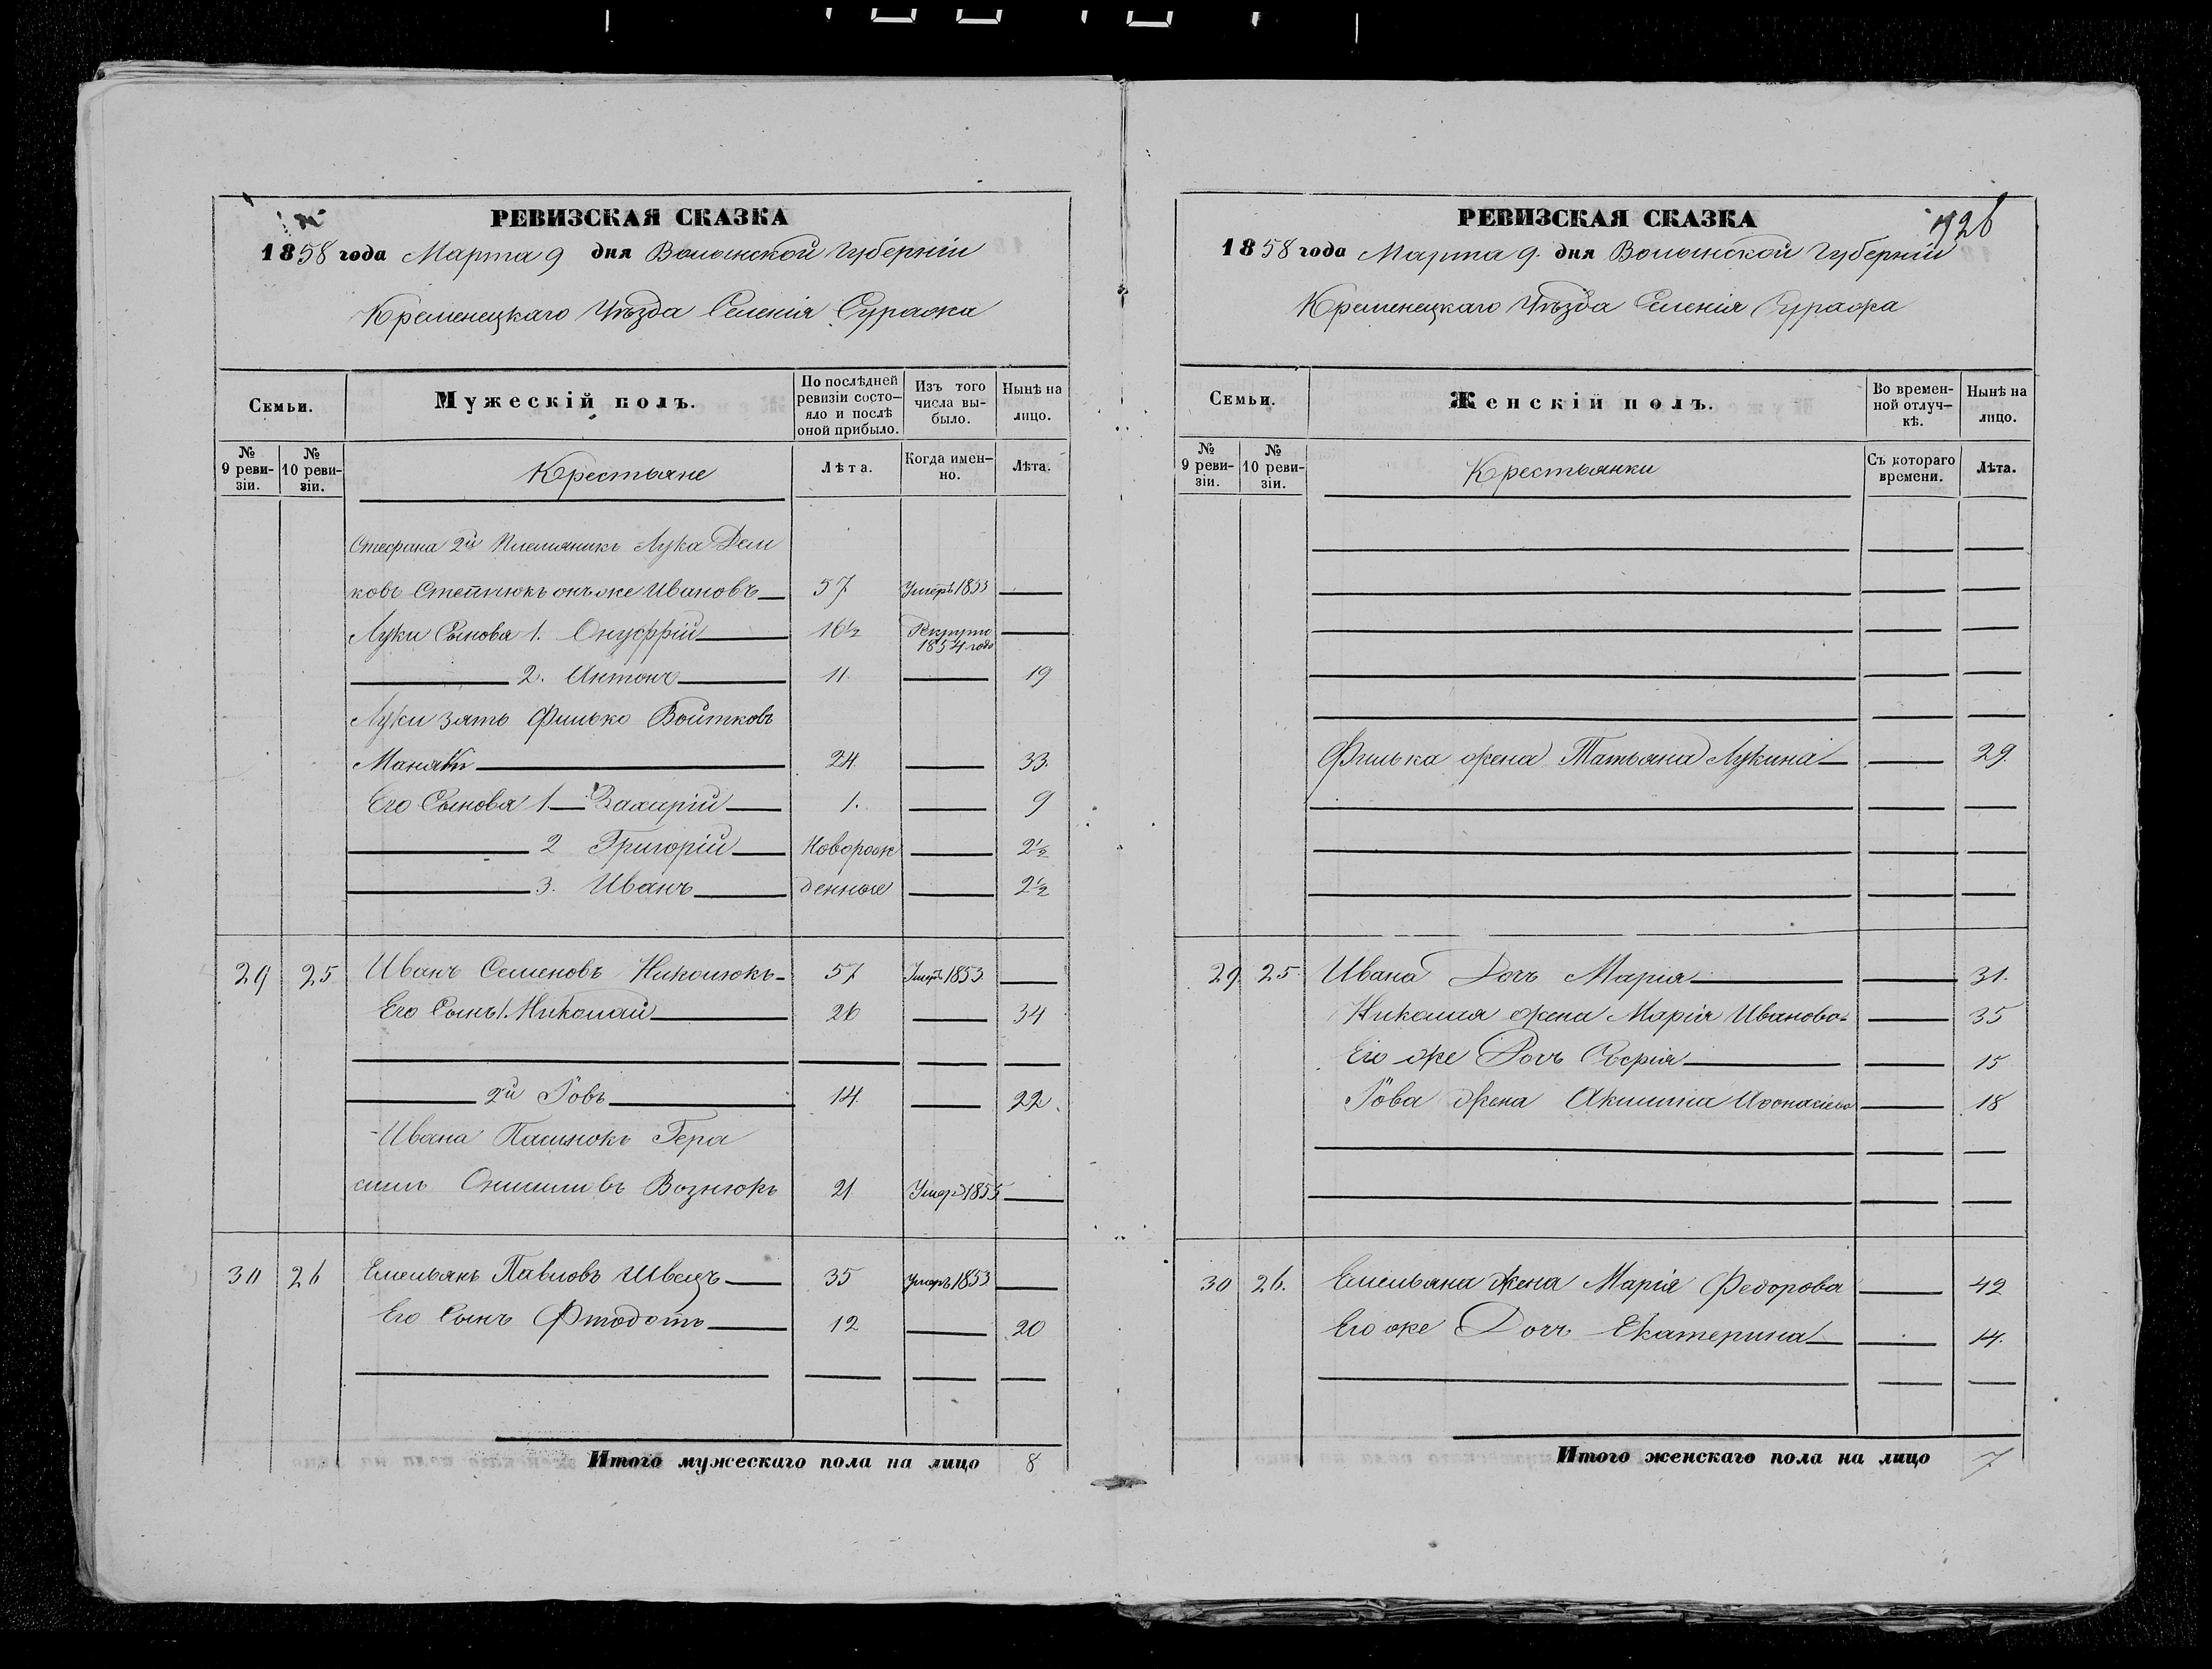 РЕВИЗСКАЯ СКАЗКА
1858 года Марта 9 дня Волынской Губерніи
Кременецкаго Уѣзда Селенія Суража
Семьи.
Мужескій полъ.
По послѣдней ревизіи состояло и послѣ оной прибыло.
Изъ того числа выбыло.
Нынѣ на лицо.
№ 9 ревизіи.
№ 10 ревизіи.
Крестьяне
Лѣта.
Когда именно.
Лѣта.
Стефана 2й Племянникъ Лука Дем
ковъ Степнюкъ онъже Ивановъ 57 Умеръ 1853
Луки Сыновья 1. Онуфрій 16½ Рекрутъ 1854 года
2. Антонъ 11 19
Луки зять Филько Войтковъ
24 33.
Его Сыновья 1 Захарій 1. 9
2 Григорій Новорож 2½
3. Иванъ денные 2½
29 25 Иванъ Семеновъ Николюкъ 57 Умеръ 1853
Его Сынъ 1. Николай 26 34
2й Іовъ 14 22
Ивана Пасынокъ Гера
симъ Онисимовъ Вознюкъ 21 Умеръ 1855
30 26 Емельянъ Павловъ Швецъ 35 умеръ 1853
Его Сынъ Фтодотъ 12 20
Итого мужескаго пола на лицо 8
РЕВИЗСКАЯ СКАЗКА
926
1858 года Марта 9. дня Волынской Губерніи
Кременецкаго Уѣзда Селенія Суража
Семьи.
Женскій полъ.
Во временной отлучкѣ.
Нынѣ на лицо.
№ 9 ревизіи.
№ 10 ревизіи.
Крестьянки
Съ котораго времени.
Лѣта.
Филька жена Татьяна Лукина 29.
29. 25. Ивана Дочъ Марія 31.
Николая жена Марія Иванова 35
Его же Дочъ Софія 15
Іова Жена Акилина Афонасіева 18
30 26. Емельяна Жена Марія Федорова 42
Его же Дочъ Екатерина 14.
Итого женскаго пола на лицо 7